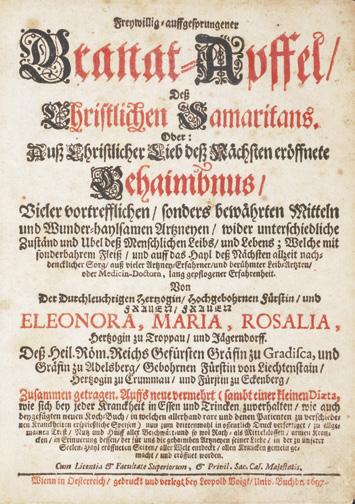 Freywillig-auffgesprungener
Granat-Apffel/
Deß
Christlichen Samaritans.
Oder:
Auß Christlicher Lieb deß Nächsten eröffnete
Gehaimbnus/
Vieler vortrefflichen/ sonders bewährten Mitteln
und Wunder-haylsamen Artzneyen/ wider unterschiedliche
Zuständ und Ubel deß Menschlichen Leibs/ und Lebens; Welche mit
sonderbahrem Fleiß/ und auff das Hayl deß Nächsten allzeit nach-
dencklicher Sorg/ auß vieler Artzney-Erfahrner/ und berühmter Leib-Aertzten/
oder Medicin-Doctorn, lang gepflogener Erfahrenheit.
Von
Der Durchleuchtigen Hertzogin/ Hochgebohrnen Fürstin/ und
FRAUEN/ FRAUEN/
ELEONORA, MARIA, ROSALIA,
Hertzogin zu Troppau/ und Jägerndorff.
Deß Heil. Röm. Reichs Gefürsten Gräfin zu Gradisca, und
Gräfin zu Adelsberg/ Gebohrnen Fürstin von Liechtenstain/
Hertzogin zu Crummau/ und Fürstin zu Eckenberg/
Zusammen getragen. Auffs neue vermehrt (sambt einer kleinen Diæta,
wie sich bey jeder Kranckheit in Essen und Trincken zuverhalten/ wie auch
bey gefügten neuen Koch-Buch/ in welchen allerhand rare und denen Patienten zu verschiede-
nen Kranckheiten ersprießliche Speisen) nun zum drittenmahl in öffentlich Druck verfertiget/ zu allge-
Cum Licentia & Facultate Superiorum, & Privil. Sac. Cæs. Majestatis.
Wienn in Oesterreich/ gedruckt und verlegt bey Leopold Voigt/ Univ. Buchdr. 1697.